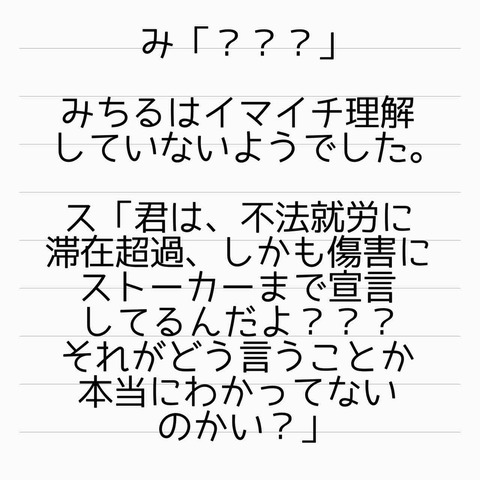 み「？？？」
みちるはイマイチ理解
していないようでした。
ス「君は、不法就労に
滞在超過、しかも傷害に
ストーカーまで宣言
してるんだよ？？？
それがどう言うことか
本当にわかってない
のかい？」